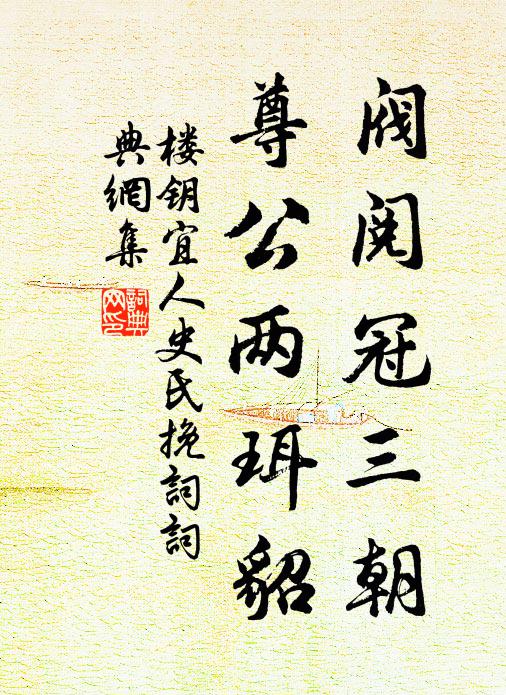 阀阅冠三朝
尊公两珥貂
楼钥宜人史氏挽词词
典網集
詞典网印